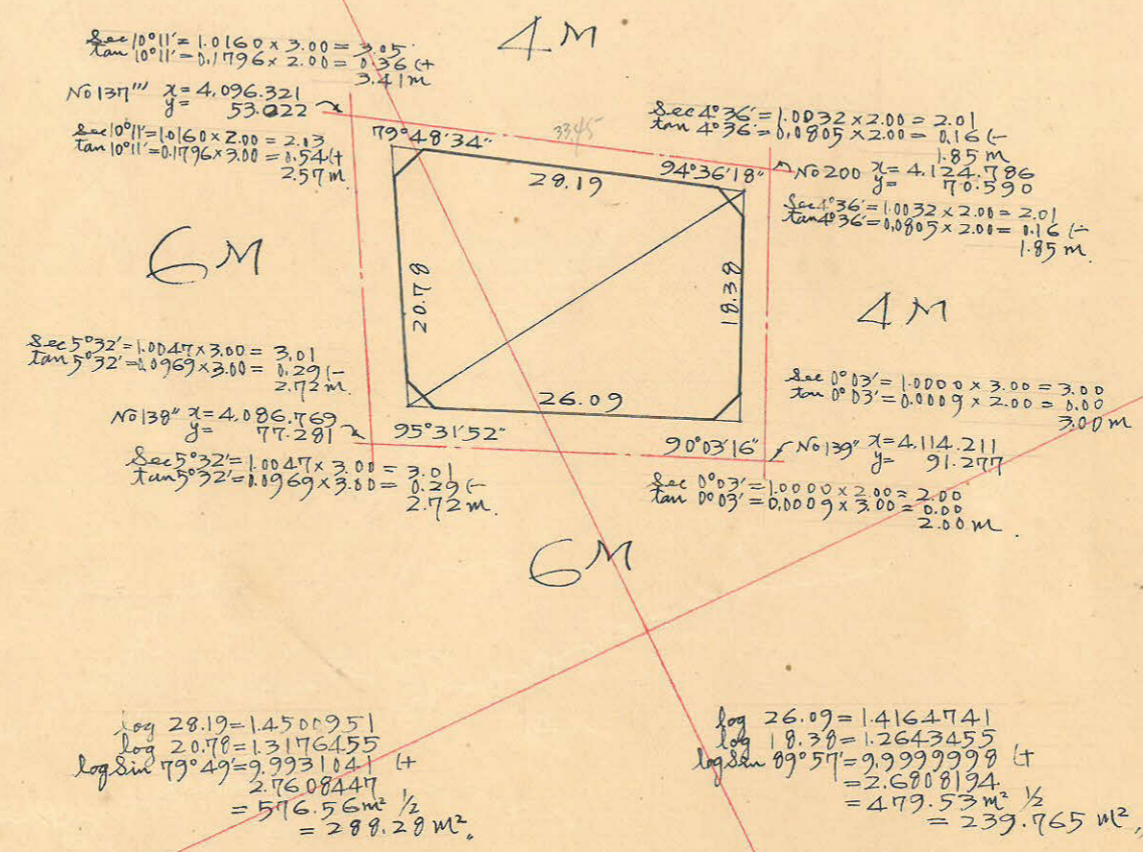 4M
Sec 10°11' = 1.0160 × 3.00 = 3.05
tan 10°11' = 0.1796 × 2.00 = 0.36 (+
3.41m
No 137''' x = 4,096.321
y = 53.022
Sec 10°11' = 1.0160 × 2.00 = 2.03
tan 10°11' = 0.1796 × 3.00 = 0.54 (+
2.57m
79°48'34"
3345
28.19
94°36'18"
Sec 4°36' = 1.0032 × 2.00 = 2.01
tan 4°36' = 0.0805 × 2.00 = 0.16 (-
1.85m
No 200 x = 4.124.786
y = 70.590
Sec 4°36' = 1.0032 × 2.00 = 2.01
tan 4°36' = 0.0805 × 2.00 = 0.16 (-
1.85m
6M
20.78
18.38
4M
Sec 5°32' = 1.0047 × 3.00 = 3.01
tan 5°32' = 0.0969 × 3.00 = 0.29 (-
2.72m
No 138" x = 4,086.769
y = 77.281
95°31'52"
Sec 5°32' = 1.0047 × 3.00 = 3.01
tan 5°32' = 0.0969 × 3.00 = 0.29 (-
2.72m
26.09
Sec 0°03' = 1.0000 × 3.00 = 3.00
tan 0°03' = 0.0009 × 2.00 = 0.00
3.00m
90°03'16"
No 139" x = 4,114.211
y = 91.277
Sec 0°03' = 1.0000 × 2.00 = 2.00
tan 0°03' = 0.0009 × 3.00 = 0.00
2.00m
6M
log 28.19 = 1.4500951
log 20.78 = 1.3176455
log Sin 79°49' = 9.9931041 (+
2.7608447
= 576.56m² 1/2
= 288.28m²
log 26.09 = 1.4164741
log 18.38 = 1.2643455
log Sin 89°57' = 9.9999998 (+
= 2.6808194
= 479.53m² 1/2
= 239.765m²